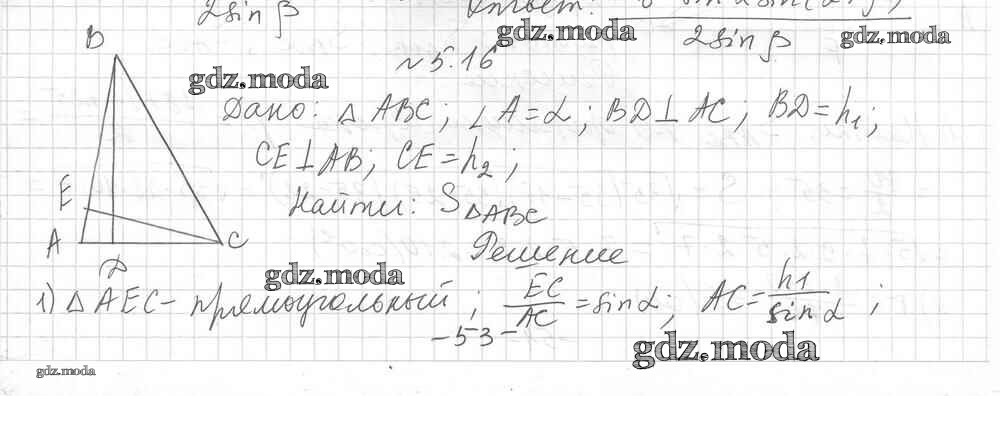 2sin β Ответ:
2sin β
gdz.moda gdz.moda
B
№5.16
gdz.moda
Дано: △ ABC; ∠A=α; BD⊥AC; BD=h₁;
CE⊥AB; CE=h₂;
E
Найти: S△ABC
A C
Решение
D
gdz.moda
1) △AEC - прямоугольный; EC/AC = sinα; AC = h1/sinα;
-53-
gdz.moda
gdz.moda